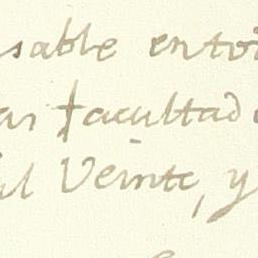 sable en to
as facultad
il Veinte, y